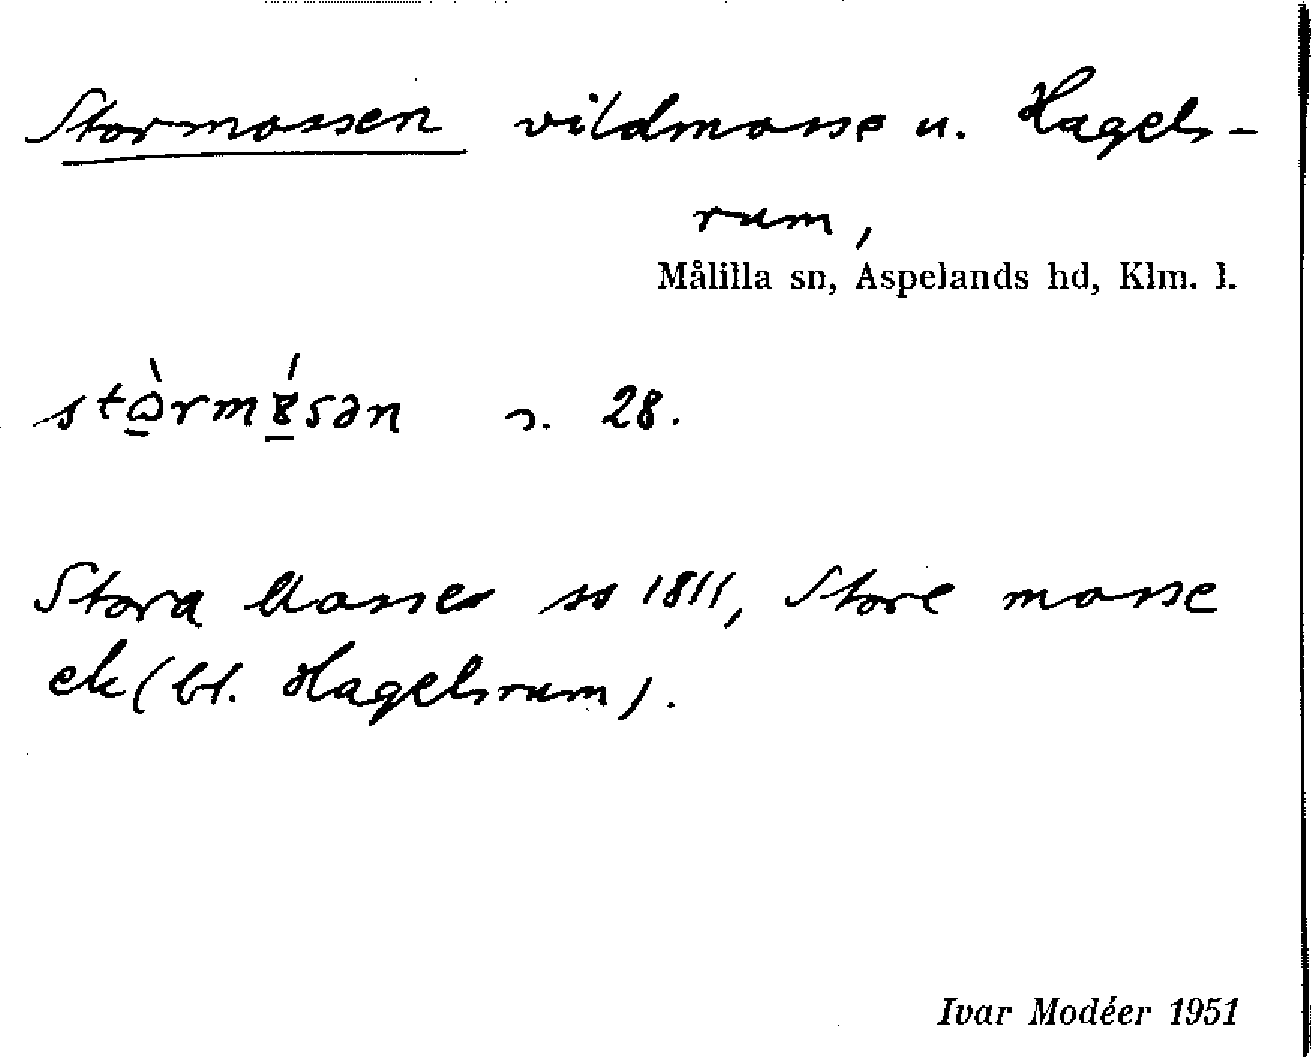 Stormossen vildmosse u. Hagels-
rum,
Målilla sn, Aspelands hd, Klm. l.
28.
Stora Mossen ss 1811, Store mosse
ek (bl. Hagelsrum).
Ivar Modéer 1951